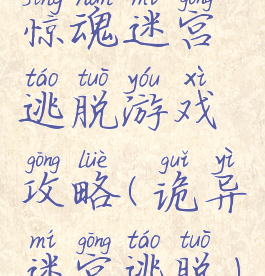 jīng hún mí gōng
惊魂迷宫
táo tuō yóu xì
逃脱游戏
gōng lüè guǐ yì
攻略(诡异
mí gōng táo tuō
迷宫逃脱)